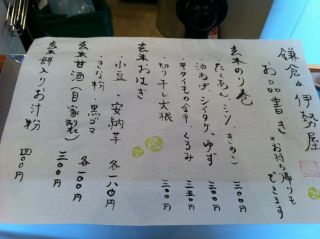 鎌倉 伊勢屋
お品書き
*お持ち帰りもできます
玄米のり巻
たくあん・ミソ・きのこ 二〇〇円
油あげ・シイタケ・ゆず 二五〇円
キタイモのキナキ・くるみ
・切り干し大根 二〇〇円
玄米おはぎ
小豆・安納芋 各一八〇円
・きな粉・黒ゴマ 各一〇〇円
玄米甘酒(自家製) 三〇〇円
玄米餅入りお汁粉 四〇〇円